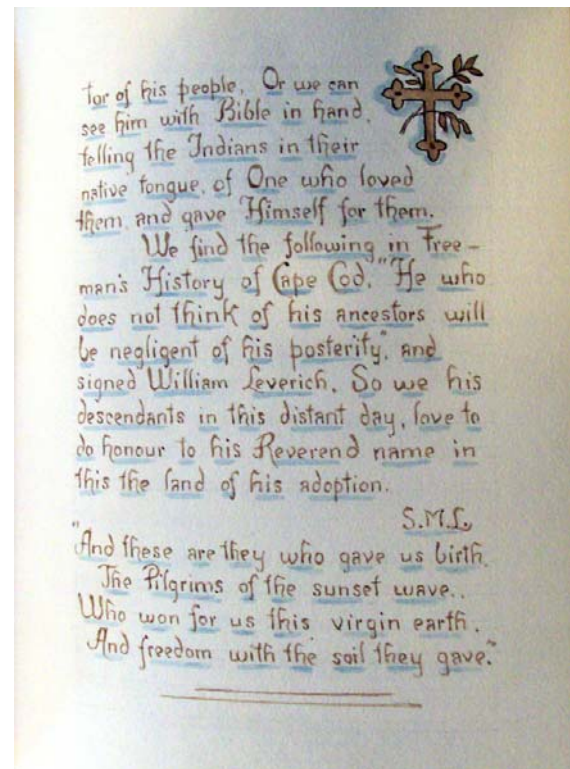 tor of his people. Or we can
see him with Bible in hand,
telling the Indians in their
native tongue, of One who loved
them, and gave Himself for them.
We find the following in Free-
man's History of Cape Cod, "He who
does not think of his ancestors will
be negligent of his posterity", and
signed William Leverich. So we his
descendants in this distant day, love to
do honour to his Reverend name in
this the land of his adoption.
S.M.L.
"And these are they who gave us birth,
The Pilgrims of the sunset wave,.
Who won for us this virgin earth,
And freedom with the soil they gave."